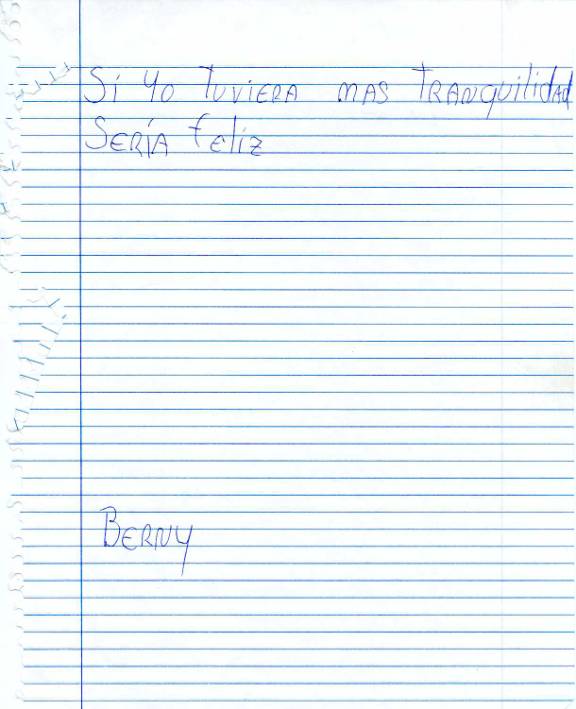 Si yo tuviera mas tranquilidad
Sería feliz
Berny